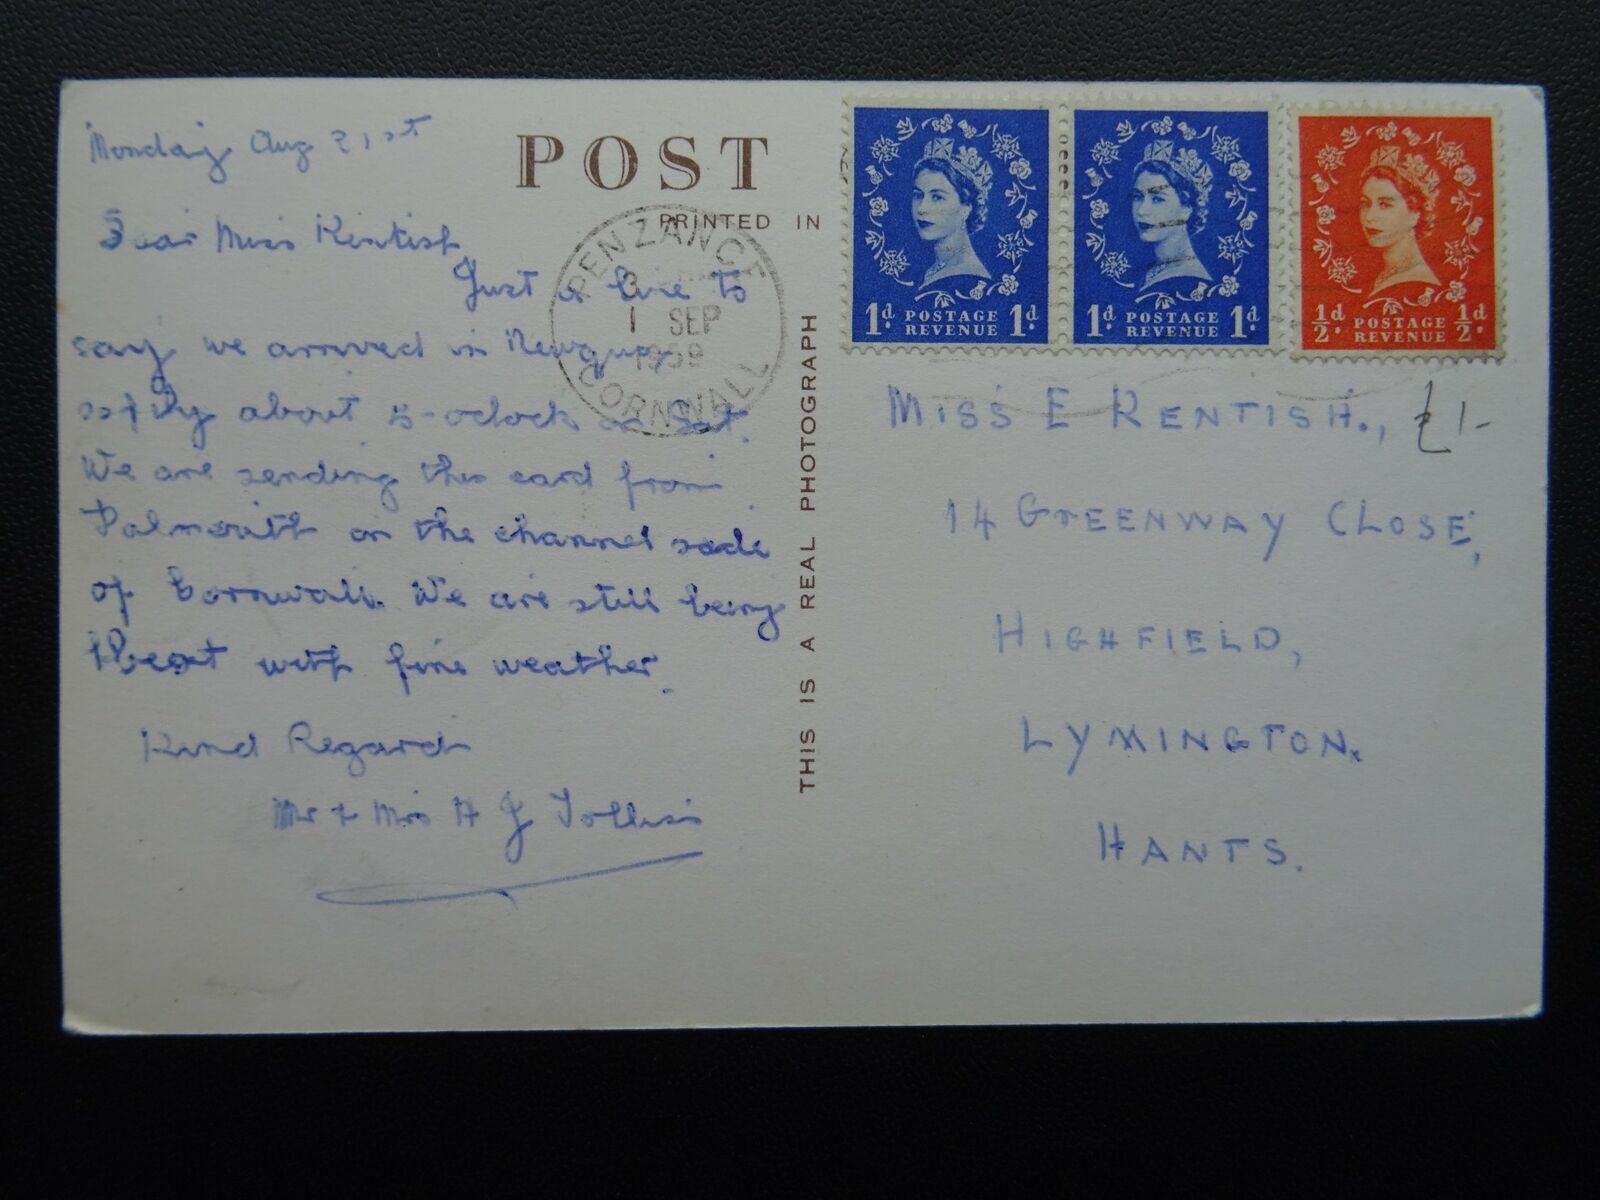 Monday Aug 31st
Dear Miss Kentish,
Just a line to
say we arrived in Newquay
safely about 5-oclock on Sat.
We are sending this card from
Falmouth on the channel side
of Cornwall. We are still being
blest with fine weather.
Kind Regards
Mr & Mrs H J
POST
PRINTED IN
THIS IS A REAL PHOTOGRAPH
PENZANCE
1 SEP
1959
CORNWALL
1d POSTAGE REVENUE 1d
1d POSTAGE REVENUE 1d
1/2d POSTAGE REVENUE 1/2d
MISS E KENTISH., £1-
14 GREENWAY CLOSE,
HIGHFIELD,
LYMINGTON.
HANTS.